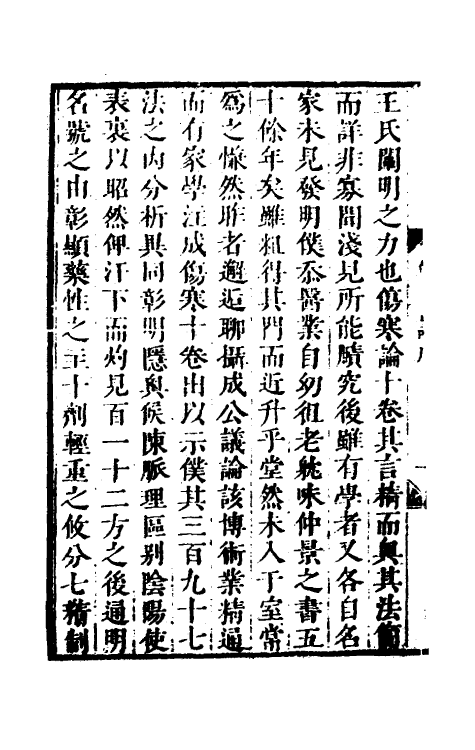 王氏闡明之力也傷寒論十卷其言精而奧其法簡
而詳非寡聞淺見所能賾究後雖有學者又各自名
家未見發明僕忝醫業自幼徂老躭味仲景之書五
十餘年矣雖粗得其門而近升乎堂然未入于室常
爲之慊然昨者邂逅聊攝成公議論該博術業精通
而有家學註成傷寒十卷出以示僕其三百九十七
法之內分析異同彰明隱奧候陳脈理區別陰陽使
表裏以昭然俾汗下而灼見百一十二方之後通明
名號之由彰顯藥性之主十劑輕重之攸分七精制